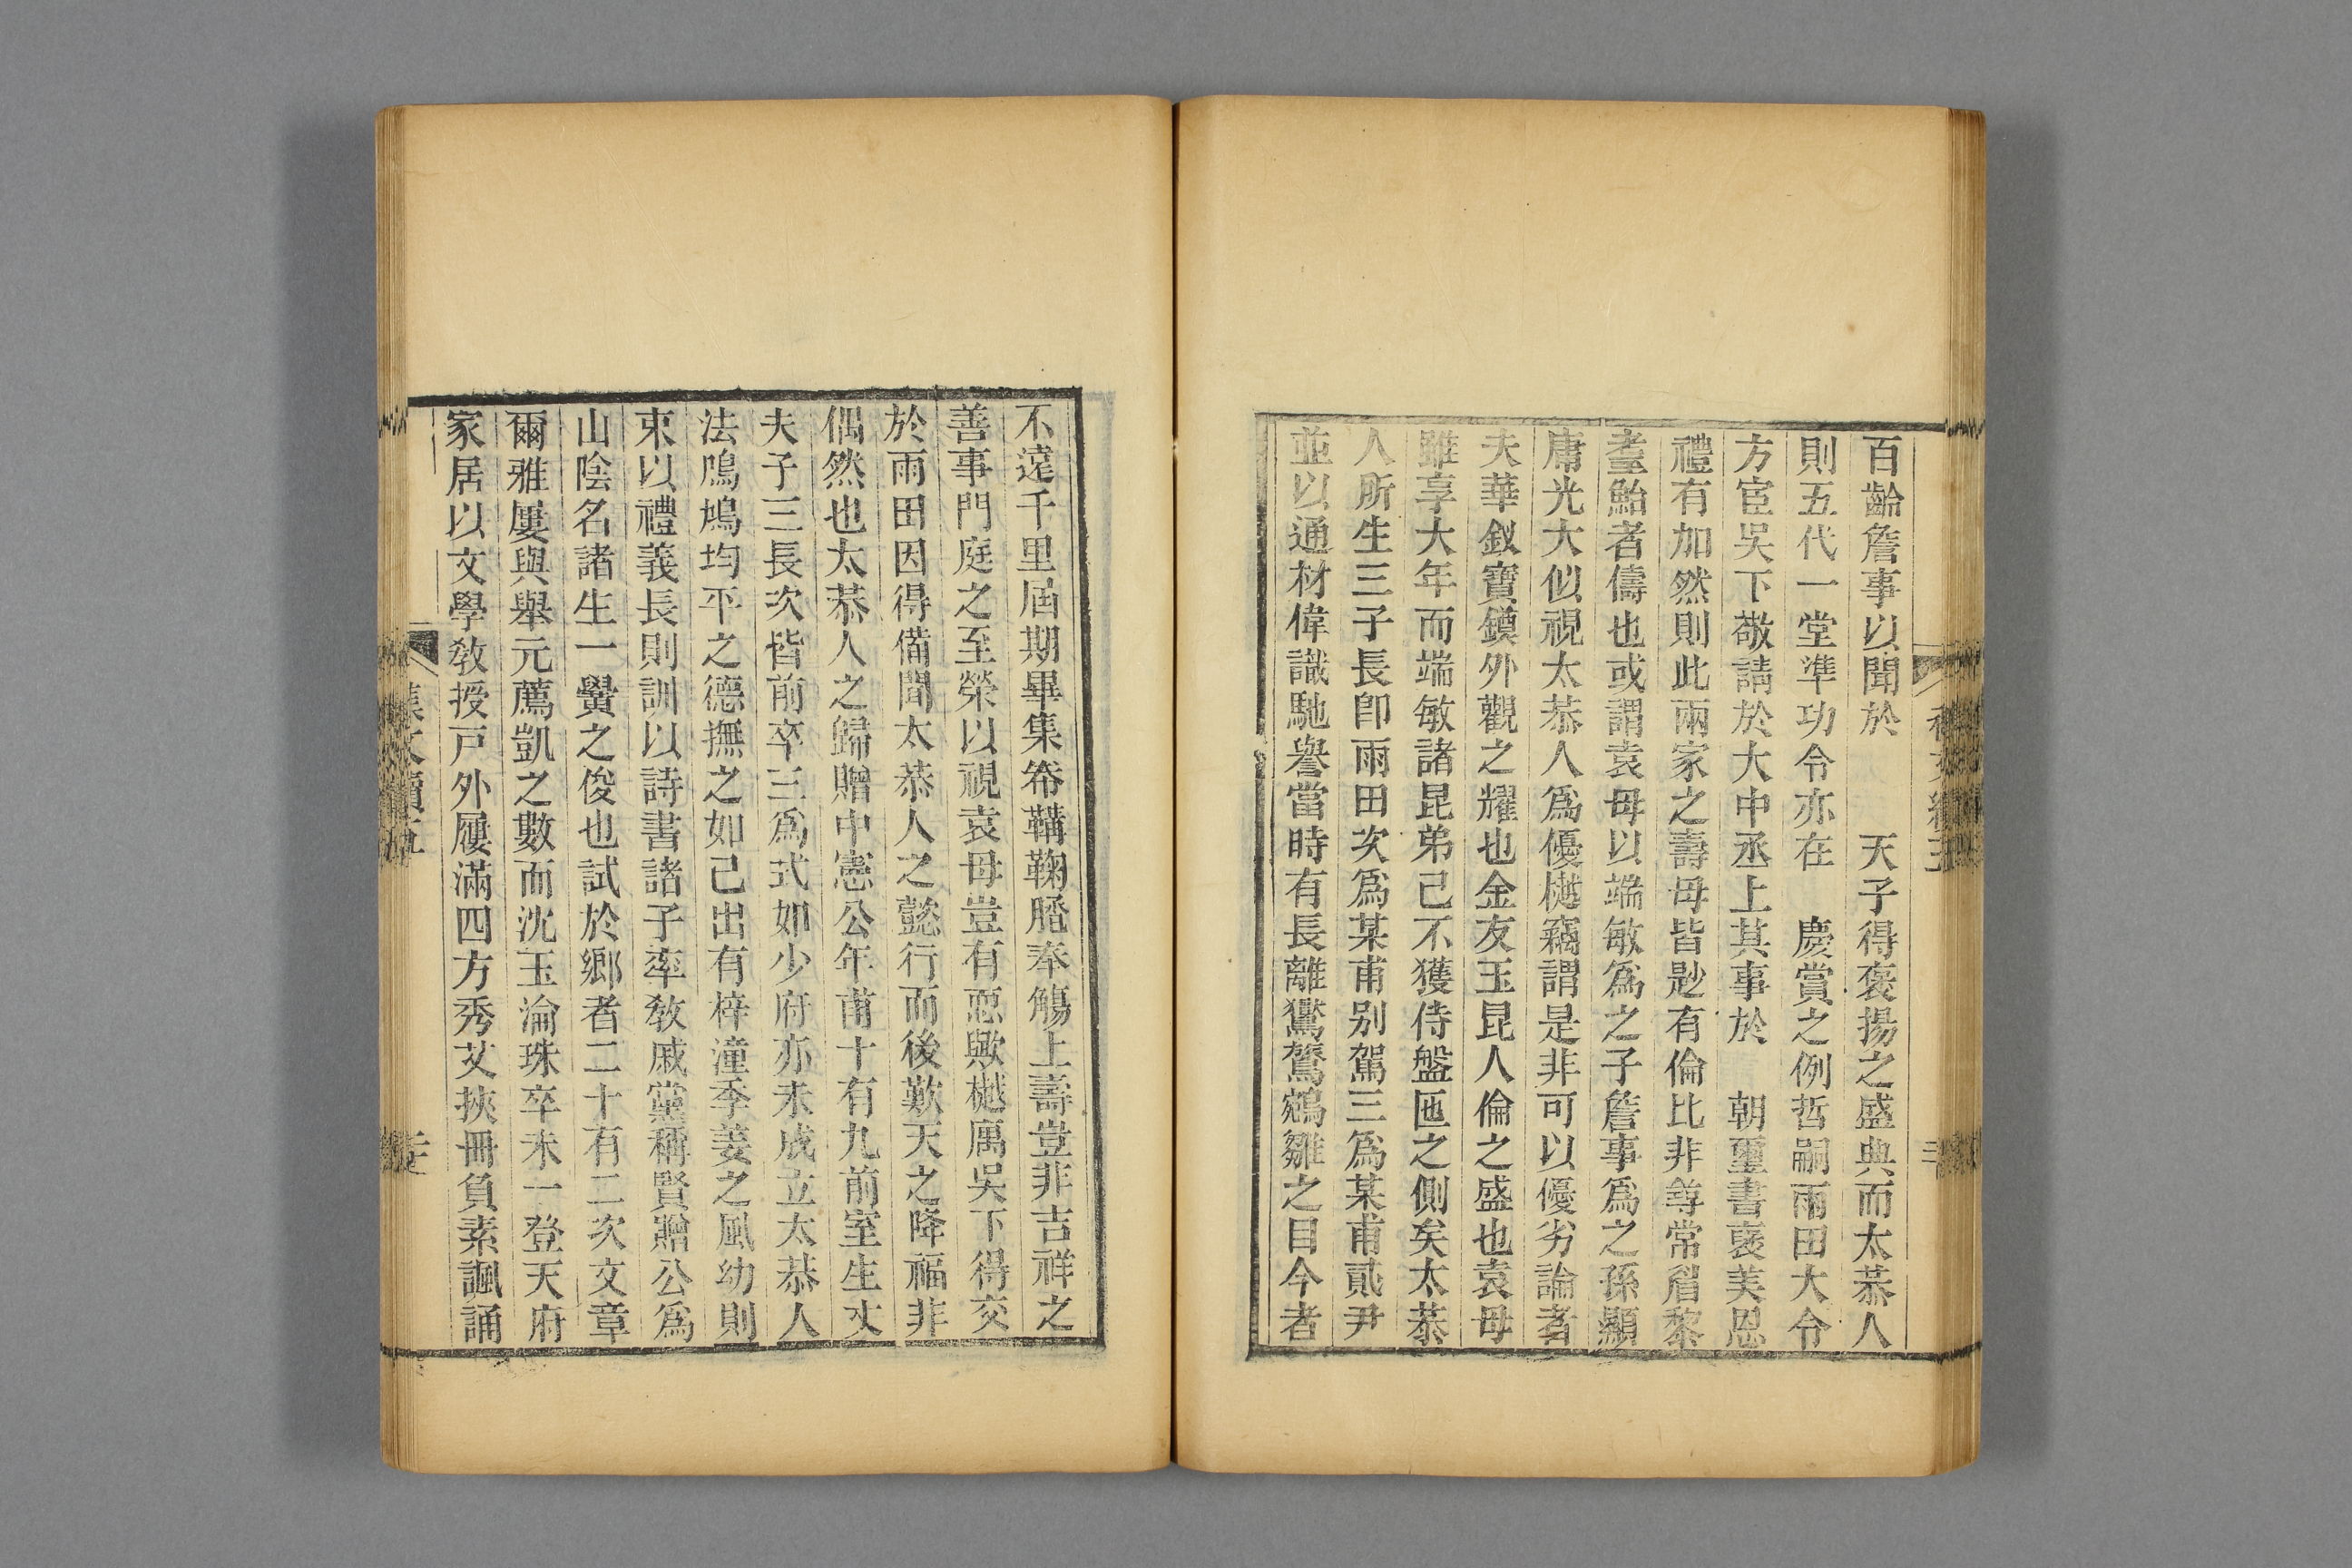 百齡詹事以聞於　　天子得褒揚之盛典而太恭人
則五代一堂準功令亦在　慶賞之例哲嗣雨田大令
方宦吳下敬請於大中丞上其事於　朝璽書褒美恩
禮有加然則此兩家之壽母皆尟有倫比非尋常眉黎
耋鮐者儔也或謂袁母以端敏爲之子詹事爲之孫顯
庸光大似視太恭人爲優樾竊謂是非可以優劣論者
夫華釵寶鏌外觀之耀也金友玉昆人倫之盛也袁母
雖享大年而端敏諸昆弟已不獲侍盤匜之側矣太恭
人所生三子長卽雨田次爲某甫別駕三爲某甫貳尹
並以通材偉識馳譽當時有長離鸑鷟鵷雛之目今者
不遠千里屆期畢集帣韝鞠𦜕奉觴上壽豈非吉祥之
善事門庭之至榮以視袁母豈有恧歟樾寓吳下得交
於雨田因得備聞太恭人之懿行而後歎天之降福非
偶然也太恭人之歸贈中憲公年甫十有九前室生丈
夫子三長次皆前卒三爲式如少府亦未成立太恭人
法鳲鳩均平之德撫之如己出有梓潼季姜之風幼則
束以禮義長則訓以詩書諸子率教戚黨稱賢贈公爲
山陰名諸生一黌之俊也試於鄉者二十有二次文章
爾雅屢與舉元薦凱之數而沈玉淪珠卒未一登天府
家居以文學敎授戸外屨滿四方秀艾挾冊負素諷誦